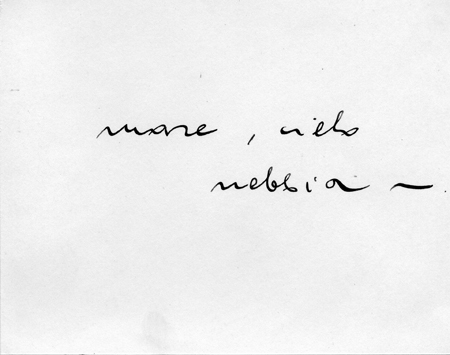 mare, cielo
nebbia —